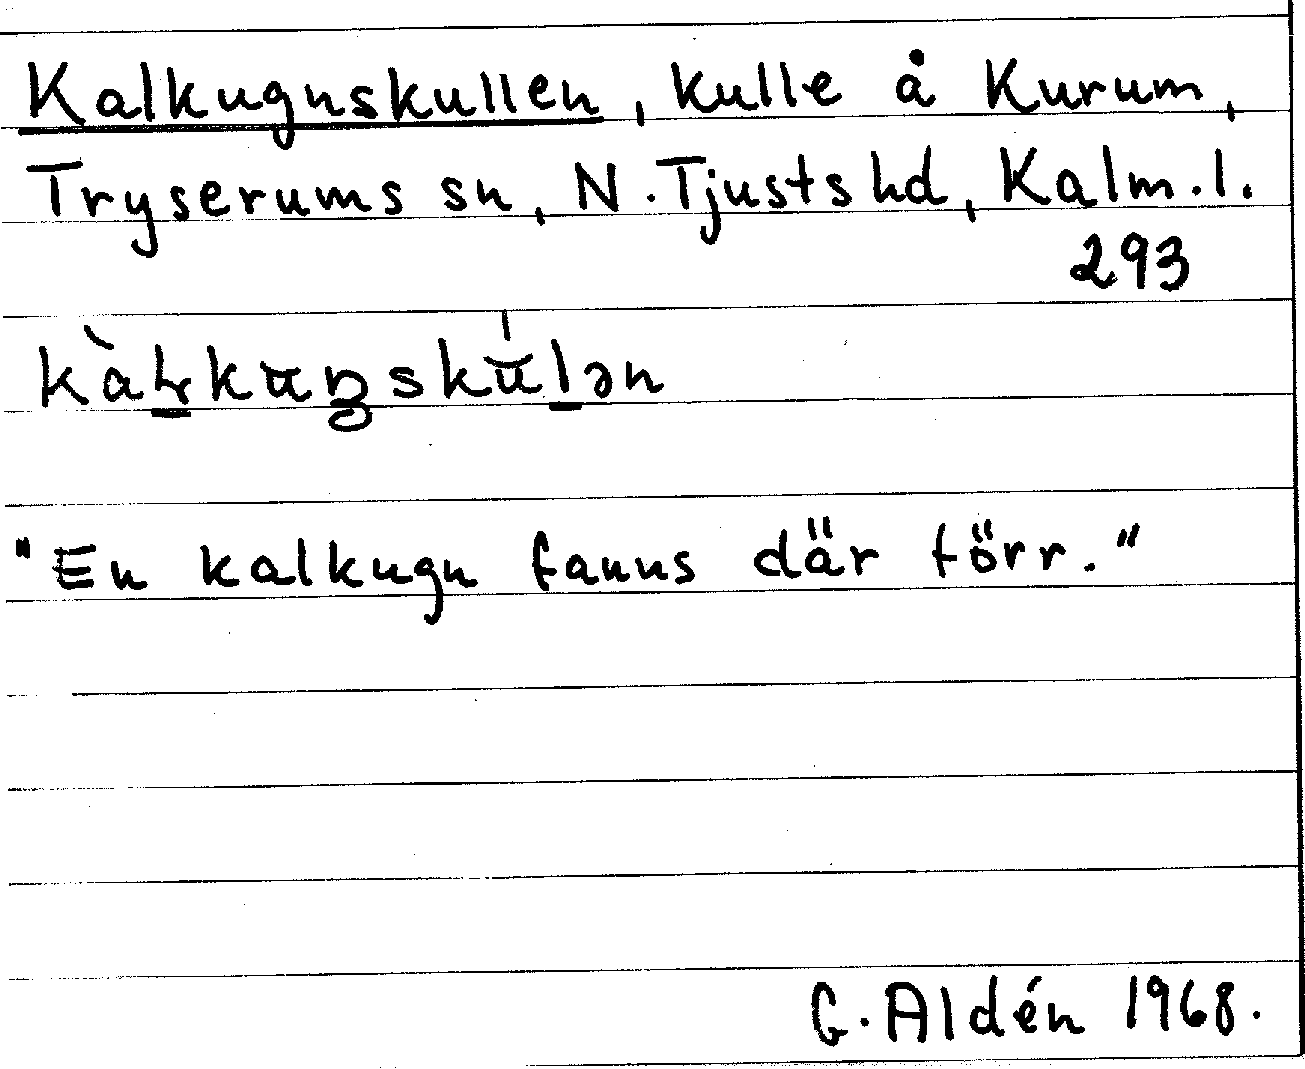 Kalkugnskullen, kulle å Kurum,
Tryserums sn, N. Tjusts hd, Kalm. l.
293
"En kalkugn fanns där förr."
G. Aldén 1968.